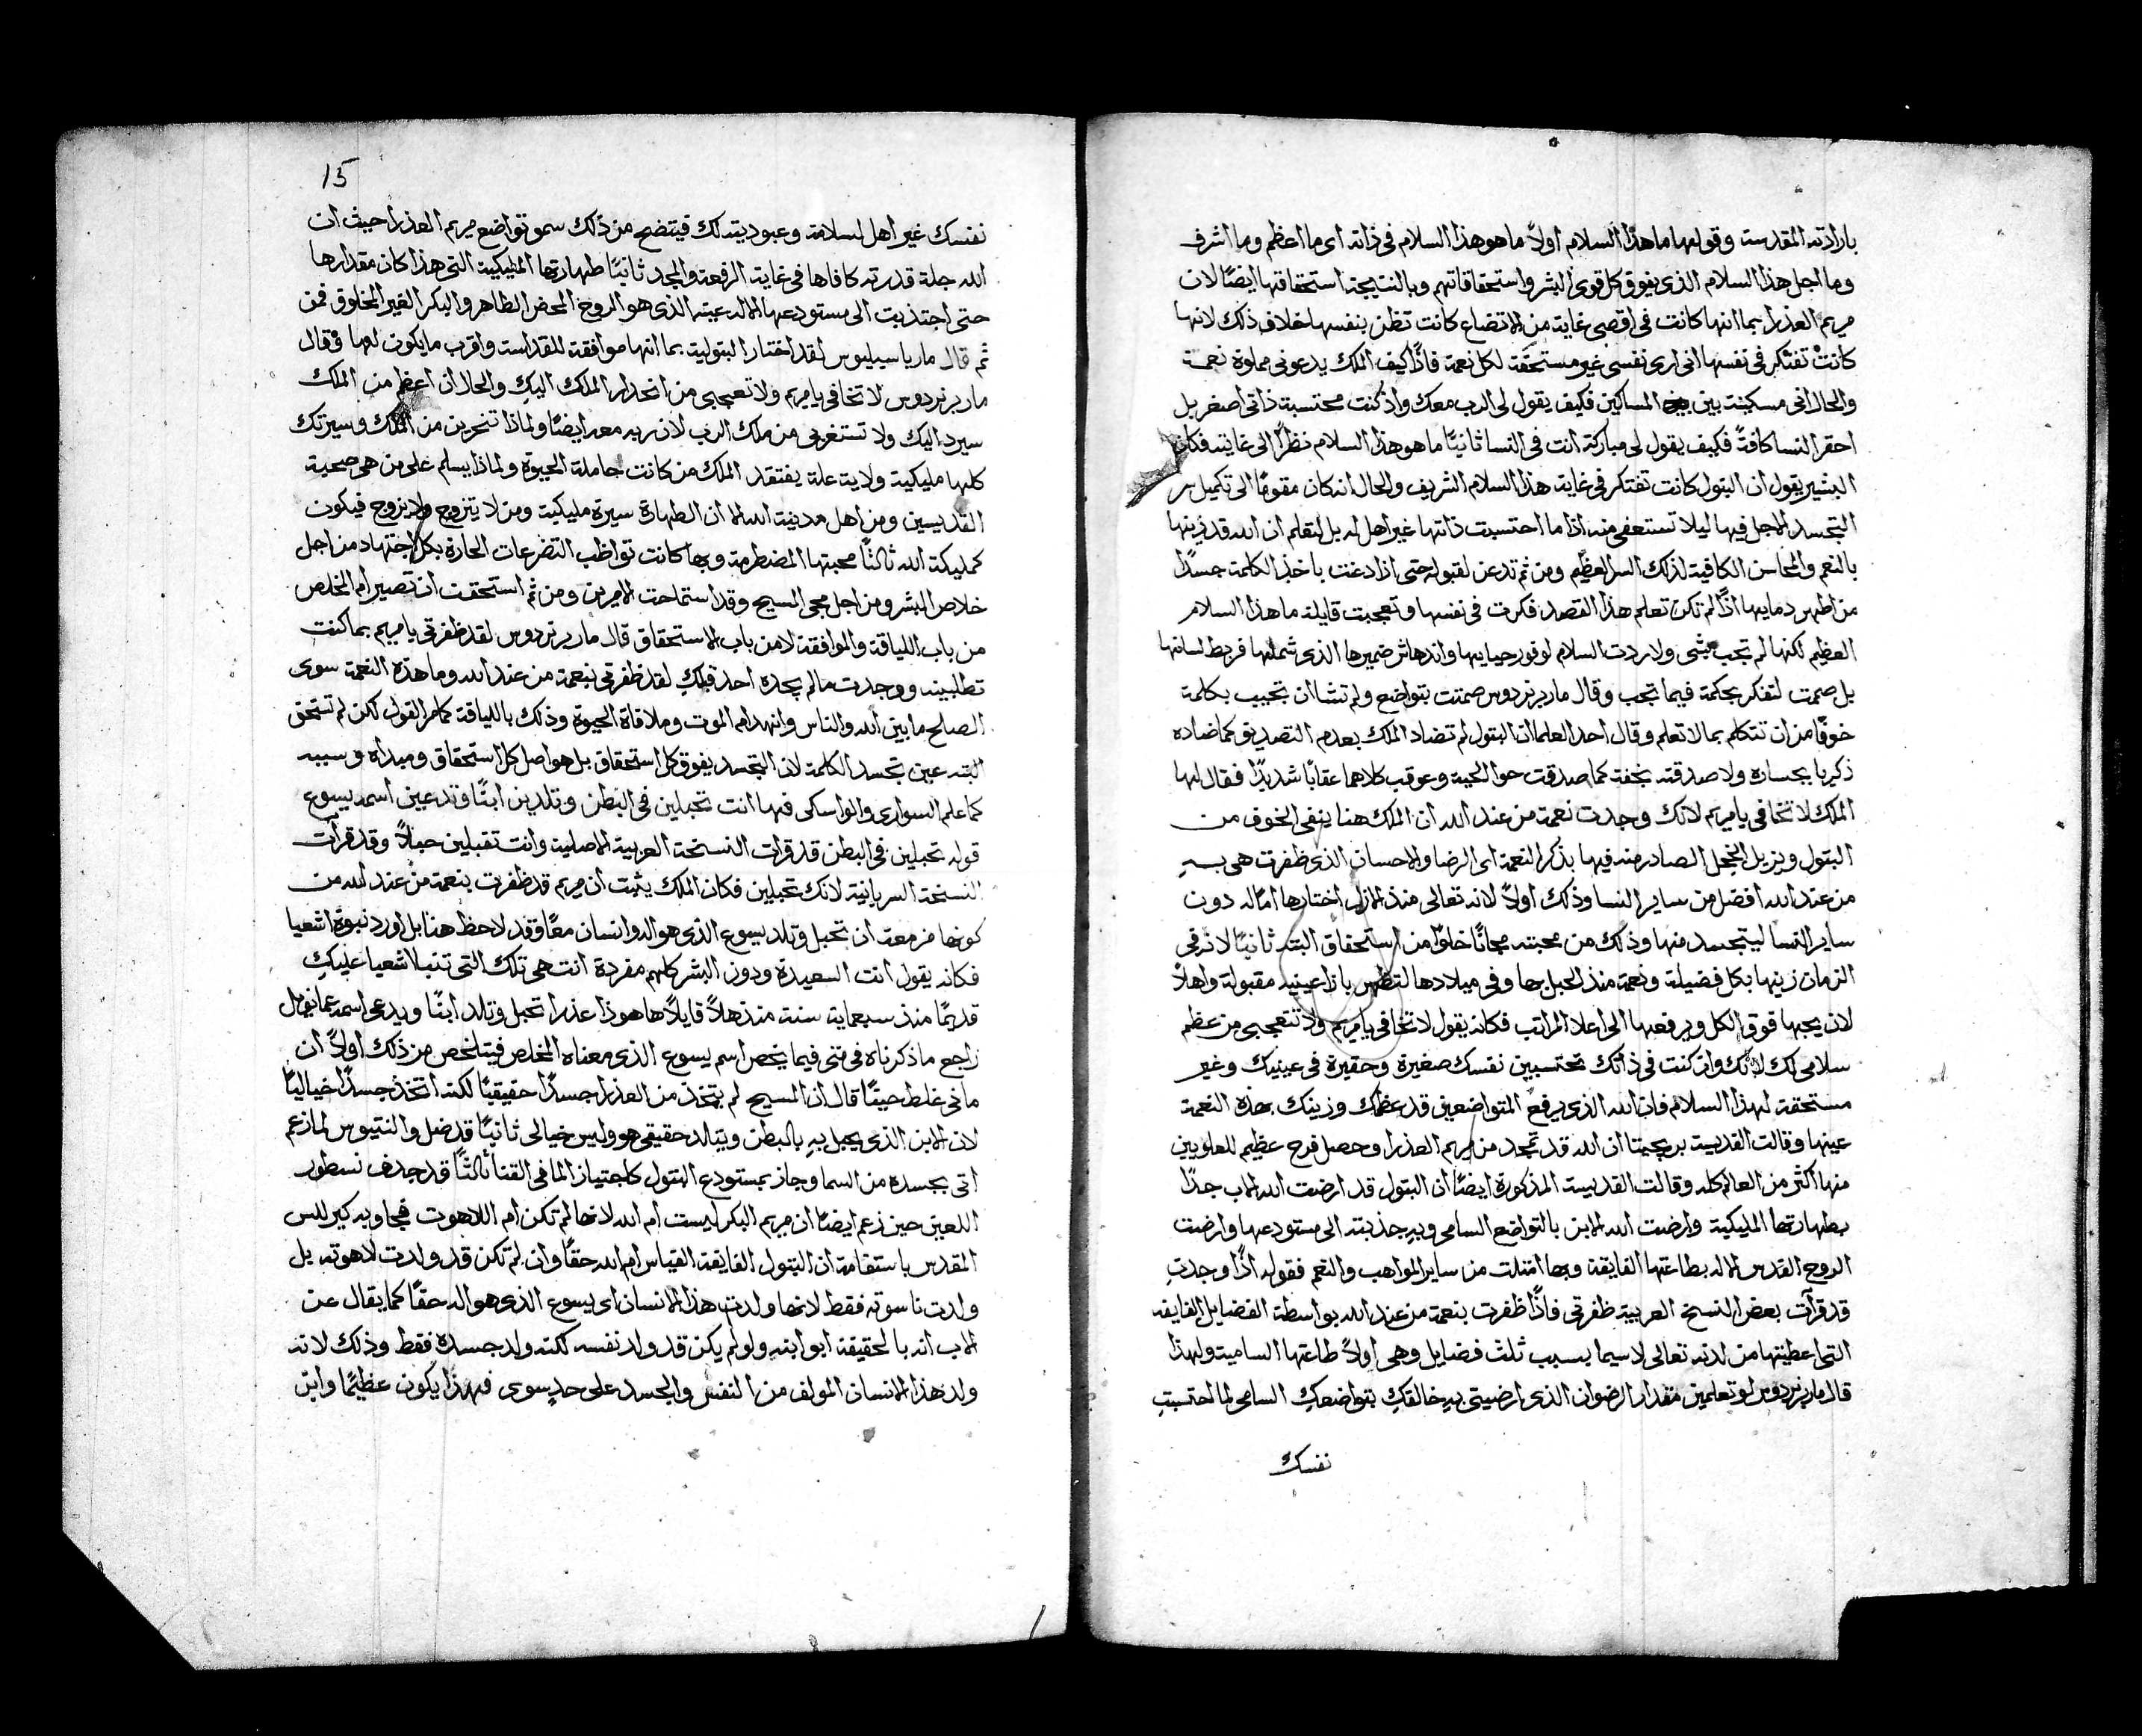 بارادته المقدسة وقولها ما هذا السلام اولاً ما هو هذا السلام فى ذاته اى ما اعظم وما اشرف
وما اجل هذا السلام الذى يفوق كل قوى البشر واستحقاقاتهم وبالنتيجة استحقاقها ايضًا لان
مريم العذرا بما انها كانت فى اقصى غاية من الاتضاع كانت تظن بنفسها خلاف ذلك لانها
كانت تفتكر فى نفسها انى ارى نفسى غير مستحقة لكل نعمة فاذًا كيف الملك يدعونى مملوة نعمة
والحال انى مسكينة بين المساكين فكيف يقول لى الرب معك واذ كنت محتسبة ذاتى اصغر بل
احقر النسا كافةً فكيف يقول لى مباركة انت فى النسا ثانيًا ما هو هذا السلام نظرًا الى غايته فكان
البشير يقول ان البتول كانت تفتكر فى غاية هذا السلام الشريف والحال انه كان مقومًا الى تكميل سر
التجسد الاجل فيها ليلا تستعفى منه اذا ما احتسبت ذاتها غير اهل له بل لتعلم ان الله قد زينها
بالنعم والمحاسن الكافية لذلك السر العظيم ومن ثم تدعن لقبوله حتى اذا دعت باخذ الكلمة جسدًا
من اطهر دمايها اذًا لم تكن تعلم هذا القصد فكرت فى نفسها وتعجبت قايلة ما هذا السلام
العظيم لكنها لم تجب بشى ولا ردت السلام لوفور حيايها واندهاش ضميرها الذى شملها فربط لسانها
بل صمتت لتفكر بحكمة فيما تجب وقال مار برنردوس صمتت بتواضع ولم تشا ان تجيب بكلمة
خوفًا من ان تتكلم بما لا تعلم وقال احد العلما ان البتول لم تضاد الملك بعدم التصديق كما ضاده
ذكريا بجسارة ولا صدقته بخفة كما صدقت حوا الحية وعوقب كلاهما عقابًا شديدًا فقال لها
الملك لا تخافى يا مريم لانك وجدت نعمة من عند الله ان الملك هنا ينفى الخوف من
البتول ويزيل الخجل الصادر منه فيها بذكر النعمة اى الرضا والاحسان الذى ظفرت هى به
من عند الله افضل من ساير النسا وذلك اولاً لانه تعالى منذ الازل اختارها امًا له دون
ساير النسا ليتجسد منها وذلك من محبته مجانًا خلوًا من استحقاق البته ثانيًا لانه فى
الزمان زينها بكل فضيلة ونعمة منذ الحبل بها وفى ميلادها لتظهر بازا عينيه مقبولة واهلاً
لان يحبها فوق الكل ويرفعها الى اعلا المراتب فكانه يقول لا تخافى يا مريم ولا تتعجبى من عظم
سلامى لك لانك وان كنت فى ذاتك تحتسبين نفسك صغيرة وحقيرة فى عينيك وغير
مستحقة لهذا السلام فان الله الذى يرفع المتواضعين قد عظمك وزينك بهذه النعمة
عينها وقالت القديسة بريجيتا ان الله قد تمجد من مريم العذرا وحصل فرح عظيم للعلويين
منها اكثر من العالم كله وقالت القديسة المذكورة ايضًا ان البتول قد ارضت الله الاب جدًا
بطهارتها المليكية وارضت الله الابن بالتواضع السامى وبه جذبته الى مستودعها وارضت
الروح القدس الاله بطاعتها الفايقة وبها امتلت من ساير المواهب والنعم فقوله اذًا وجدتِ
قد قرآت بعض النسخ العربية ظفرتى فاذًا ظفرت بنعمة من عند الله بواسطة الفضايل الفايقه
التى اعطيتها من لدنه تعالى لا سيما بسبب ثلث فضايل وهى اولاً طاعتها السامية ولهذا
قال مار برنردوس لو تعلمين مقدار الرضوان الذى ارضيتى به خالقكِ بتواضعكِ السامى لما احتسبتِ
نفسك
15
نفسك غير اهل لسلامه وعبوديته لك فيتضح من ذلك سمو تواضع مريم العذرا حيث ان
الله جلة قدرته كافاها فى غاية الرفعة والمجد ثانيًا طهارتها المليكية التى هذا كان مقدارها
حتى اجتذبت الى مستودعها الاله عينه الذى هو الروح المحض الطاهر والبكر الغير المخلوق فمن
ثم قال مار باسيليوس لقد اختار البتولية بما انها موافقة للقداسة واقرب ما يكون لها وقال
مار برنردوس لا تخافى يا مريم ولا تعجبى من انحدار الملك اليكِ والحال ان اعظم من الملك
سيرد اليك ولا تستغربى من ملك الرب لان ربه معه ايضًا ولماذا تنحرين من الملك وسيرتك
كلها مليكية ولاية علة يفتقد الملك من كانت حاملة الحيوة ولماذا يسلم على من هى صحبة
القديسين ومن اهل مدينة الله الا ان الطهارة سيرة مليكية ومن لا يتزوج ولا يزوج فيكون
كمليكة الله ثالثًا محبتها المضطرمة وبها كانت تواظب التضرعات الحارة بكل اجتهاد من اجل
خلاص البشر ومن اجل مجى المسيح وقد استماحت الامرين ومن ثم استحقت ان تصير ام المخلص
من باب اللياقة والموافقة لا من باب الاستحقاق قال مار برنردوس لقد ظفرتى يا مريم بما كنت
تطلبينه ووجدت ما لم يجده احد قبلكِ لقد ظفرتى بنعمة من عند الله وما هذه النعمة سوى
الصلح ما بين الله والناس وانهدام الموت وملاقاة الحيوة وذلك باللياقة كما مر القول لكن لم تستحق
البته عين تجسد الكلمة لان التجسد يفوق كل استحقاق بل هو اصل كل استحقاق ومبداه وسببه
كما علم السوارى والواسكى فها انت تحبلين فى البطن وتلدين ابنًا وتدعين اسمه يسوع
قوله تحبلين فى البطن قد قرات النسخة العربية الاصلية وانت تقبلين حبلاً وقد قرآت
النسخة السريانية لانك تحبلين فكان الملك يثبت ان مريم قد ظفرت بنعمة من عند الله من
كونها مزمعة ان تحبل وتلد يسوع الذى هو اله وانسان معًا وقد لاحظ هنا بل اورد نبوة اشعيا
فكانه يقول انت السعيدة ودون البشر كلهم مفردة انت هى تلك التى تنبا اشعيا عليكِ
قديمًا منذ سبعماية سنة منذهلاً قايلاً ها هوذا عذرا تحبل وتلد ابنًا ويدعى اسمه عمانويل
راجع ما ذكرناه فى متى فيما يخص اسم يسوع الذى معناه المخلص فيتلخص من ذلك اولاً ان
مانى غلط حيثًا قال ان المسيح لم يتخذ من العذرا جسدًا حقيقيًا لكنه اتخذ جسدًا خياليًا
لان الابن الذى يحبل به بالبطن ويتالد حقيقى هو وليس خيالى ثانيًا قد ضل والنتيوس لما زعم
اتى بجسده من السما وجاز بمستودع البتول كاجتياز الما فى القنا ثالثًا قد جدف نسطور
اللعين حين زعم ايضًا ان مريم البكر ليست ام الله لانها لم تكن ام اللاهوت فيجاوبه كيرللس
المقدس باستقامة ان البتول الفايقة القياس ام الله حقًا وان لم تكن قد ولدت لاهوته بل
ولدت ناسوته فقط لانها ولدت هذا الانسان اى يسوع الذى هو اله حقًا كما يقال عن
الاب انه بالحقيقة ابو ابنه ولو لم يكن قد ولد نفسه لكنه ولد جسده فقط وذلك لانه
ولد هذا الانسان المولف من النفس والجسد على حدٍ سوى فهذا يكون عظيمًا وابن